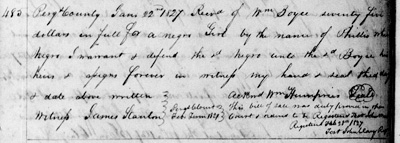 483 Perqs County Jany 22nd 1827 Recd of Wm Boyce seventy five
dollars in full for a negro Girl by the name of Phillis which
negro I warrant & defend the sd negro unto the sd Boyce his
heirs & assigns forever in witness my hand & seal the day
& date above written
Ackond Wm Humphries Seal
Witness James Stanton
Perqs County
Feby Term 1827
This bill of sale was duly proved in open
Court & ordered to be Registered
Registered Feb 1827
Test John Clary